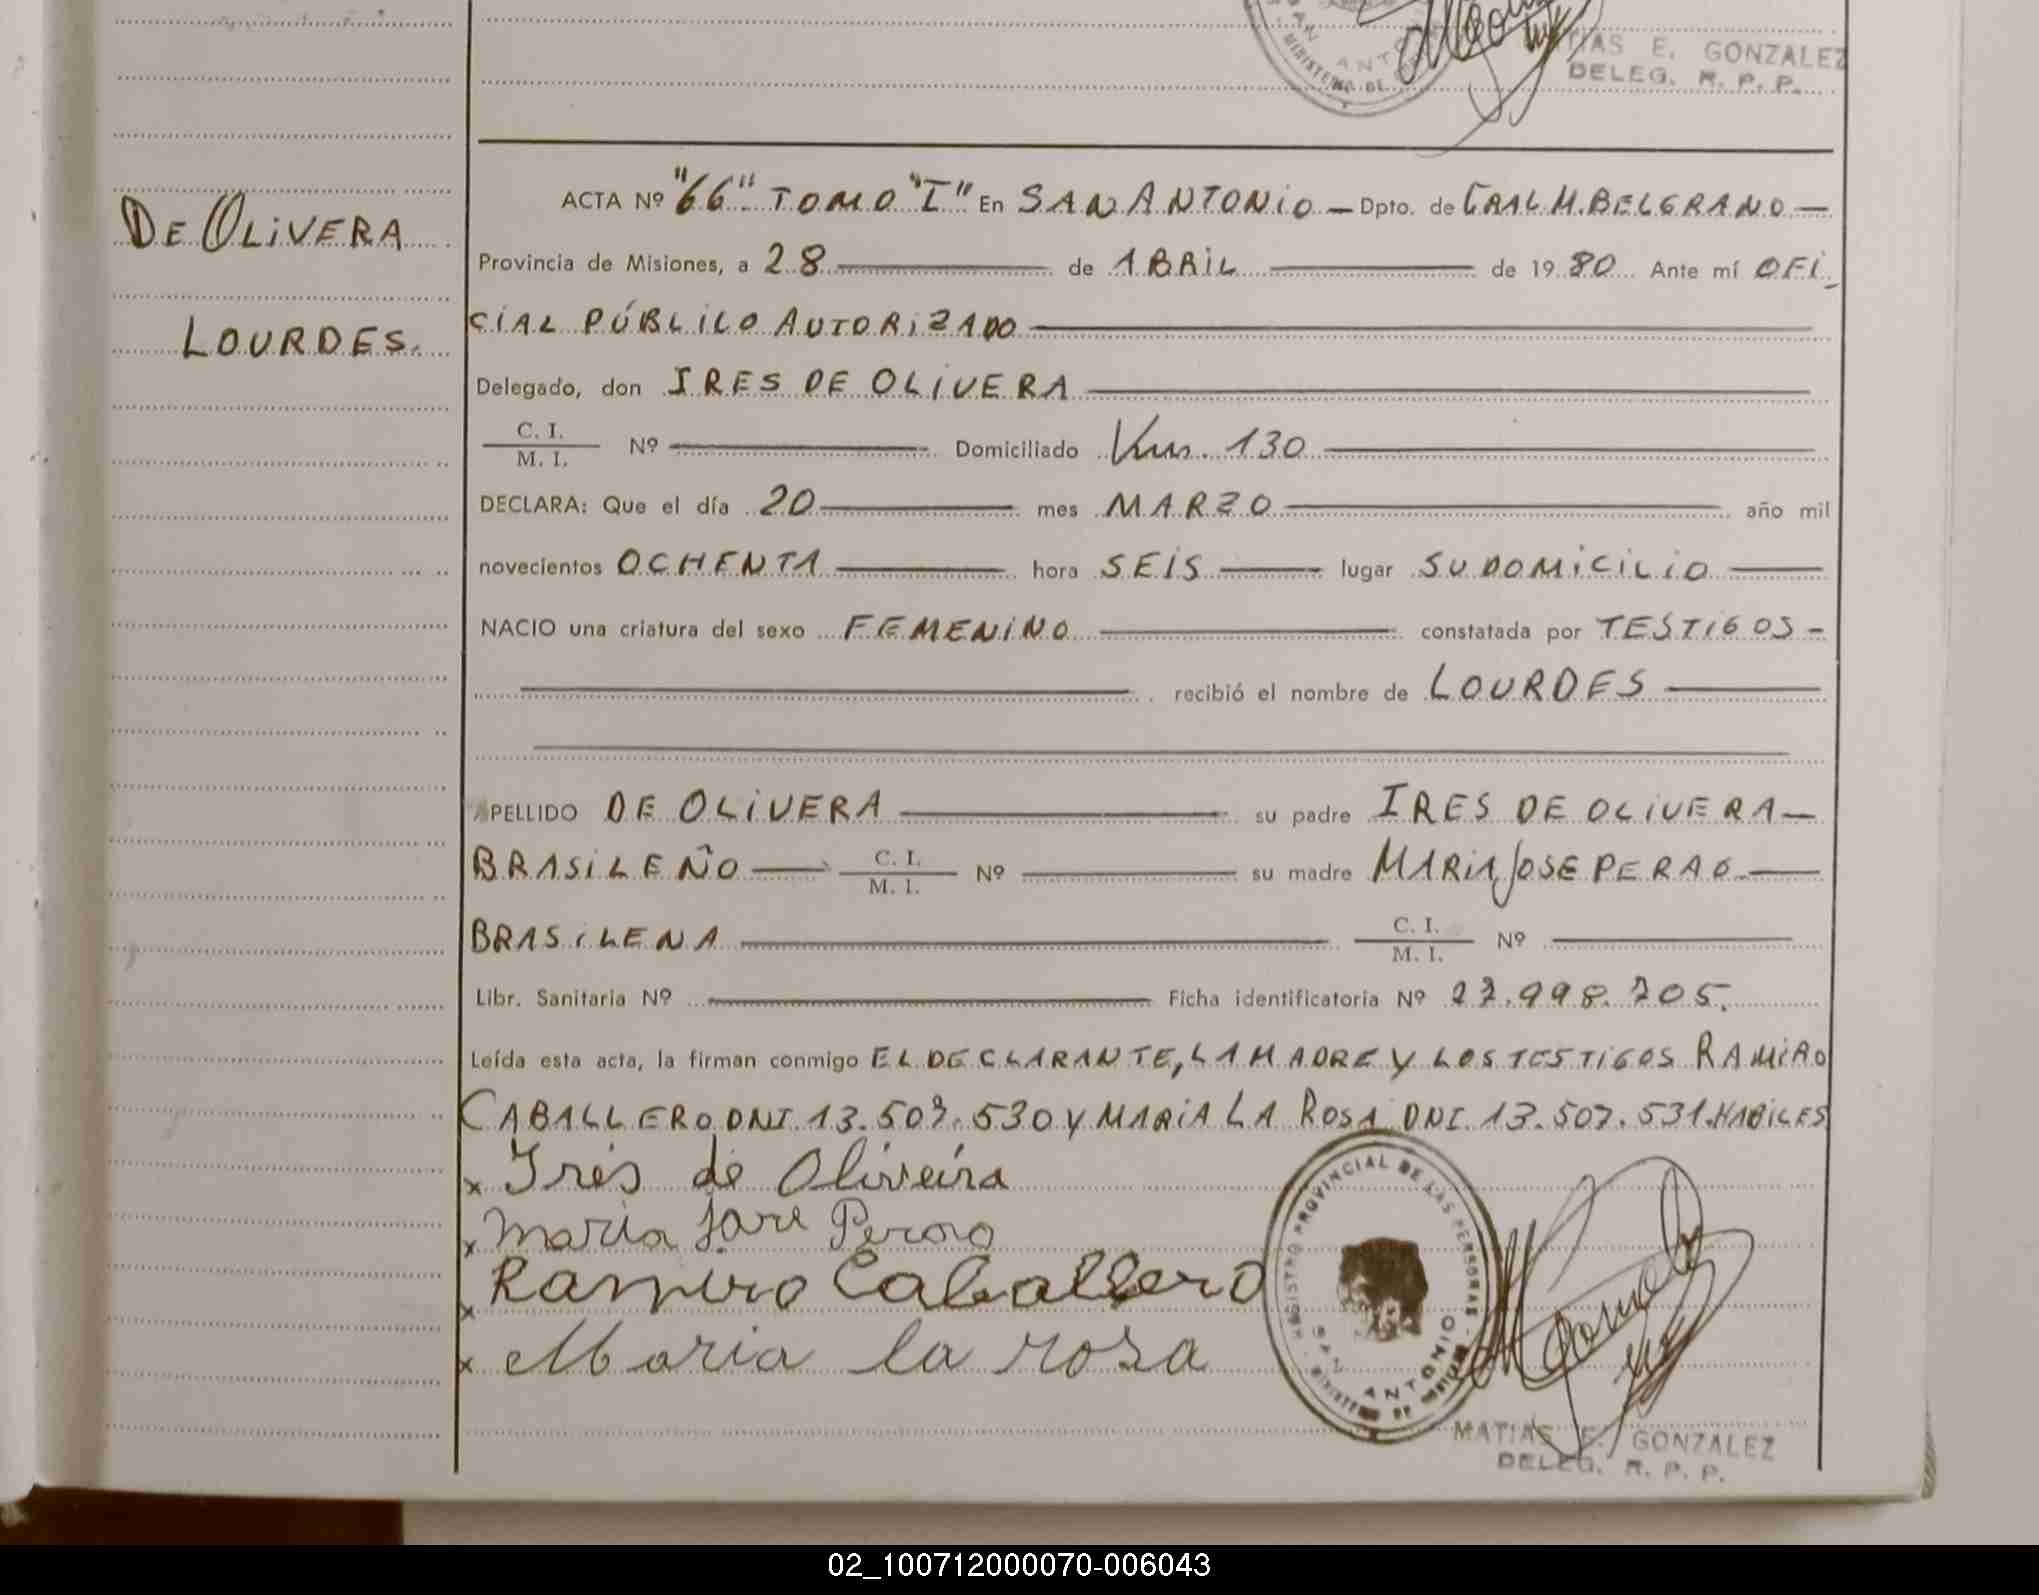 MATIAS E. GONZALEZ
DELEG. R. P. P.
DE OLIVERA
LOURDES.
ACTA Nº "66" TOMO "I" En SAN ANTONIO — Dpto. de GRAL M. BELGRANO —
Provincia de Misiones, a 28 de ABRIL de 1980 Ante mí OFI-
CIAL PÚBLICO AUTORIZADO
Delegado, don IRES DE OLIVERA
C. I.
M. I. Nº Domiciliado Km. 130
DECLARA: Que el día 20 mes MARZO año mil
novecientos OCHENTA hora SEIS lugar SU DOMICILIO
NACIO una criatura del sexo FEMENINO constatada por TESTIGOS -
recibió el nombre de LOURDES
APELLIDO DE OLIVERA su padre IRES DE OLIVERA —
BRASILEÑO C. I. M. I. Nº su madre MARIA JOSE PERAO
BRASILENA C. I. M. I. Nº
Libr. Sanitaria Nº Ficha identificatoria Nº 27.998.705.
Leída esta acta, la firman conmigo EL DECLARANTE, LA MADRE Y LOS TESTIGOS RAMIRO
CABALLERO DNI 13.507.530 Y MARIA LA ROSA DNI. 13.507.531. HABILES
x Irês de Oliveira
x Maria José Perao
x Ramiro Caballero
x Maria la rosa
REGISTRO PROVINCIAL DE LAS PERSONAS
SAN ANTONIO
MINISTERIO DE
MATIAS E. GONZALEZ
DELEG. R. P. P.
02_100712000070-006043